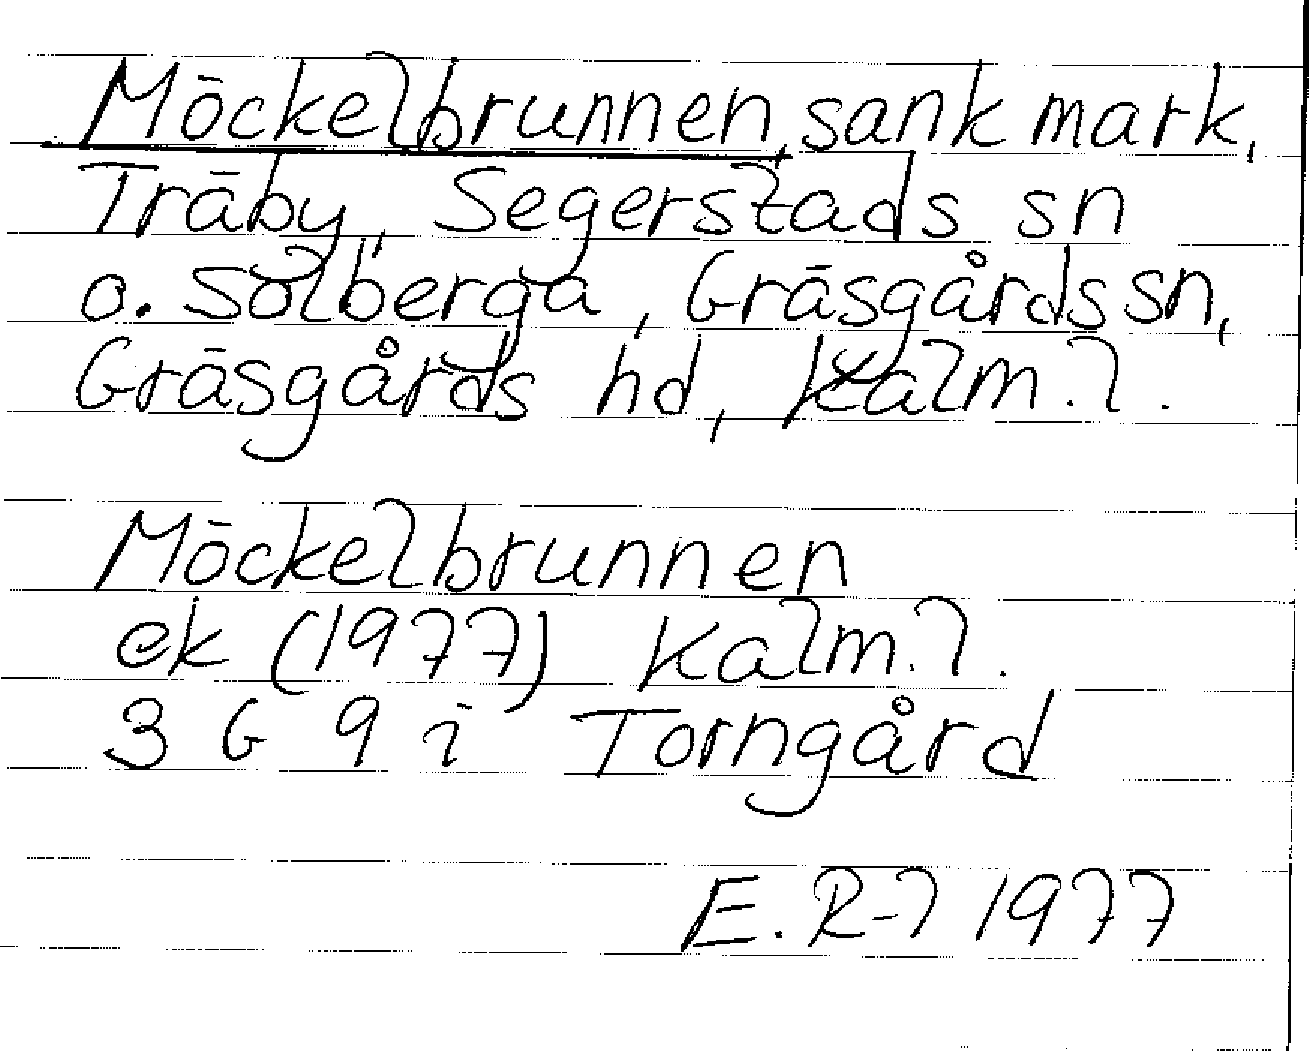 Möckelbrunnen, sank mark,
Träby, Segerstads sn
o. Solberga, Gräsgårds sn,
Gräsgårds hd, Kalm. l.
Möckelbrunnen
ek (1977) Kalm. l.
3 G 9 i Torngård
E. R-l 1977